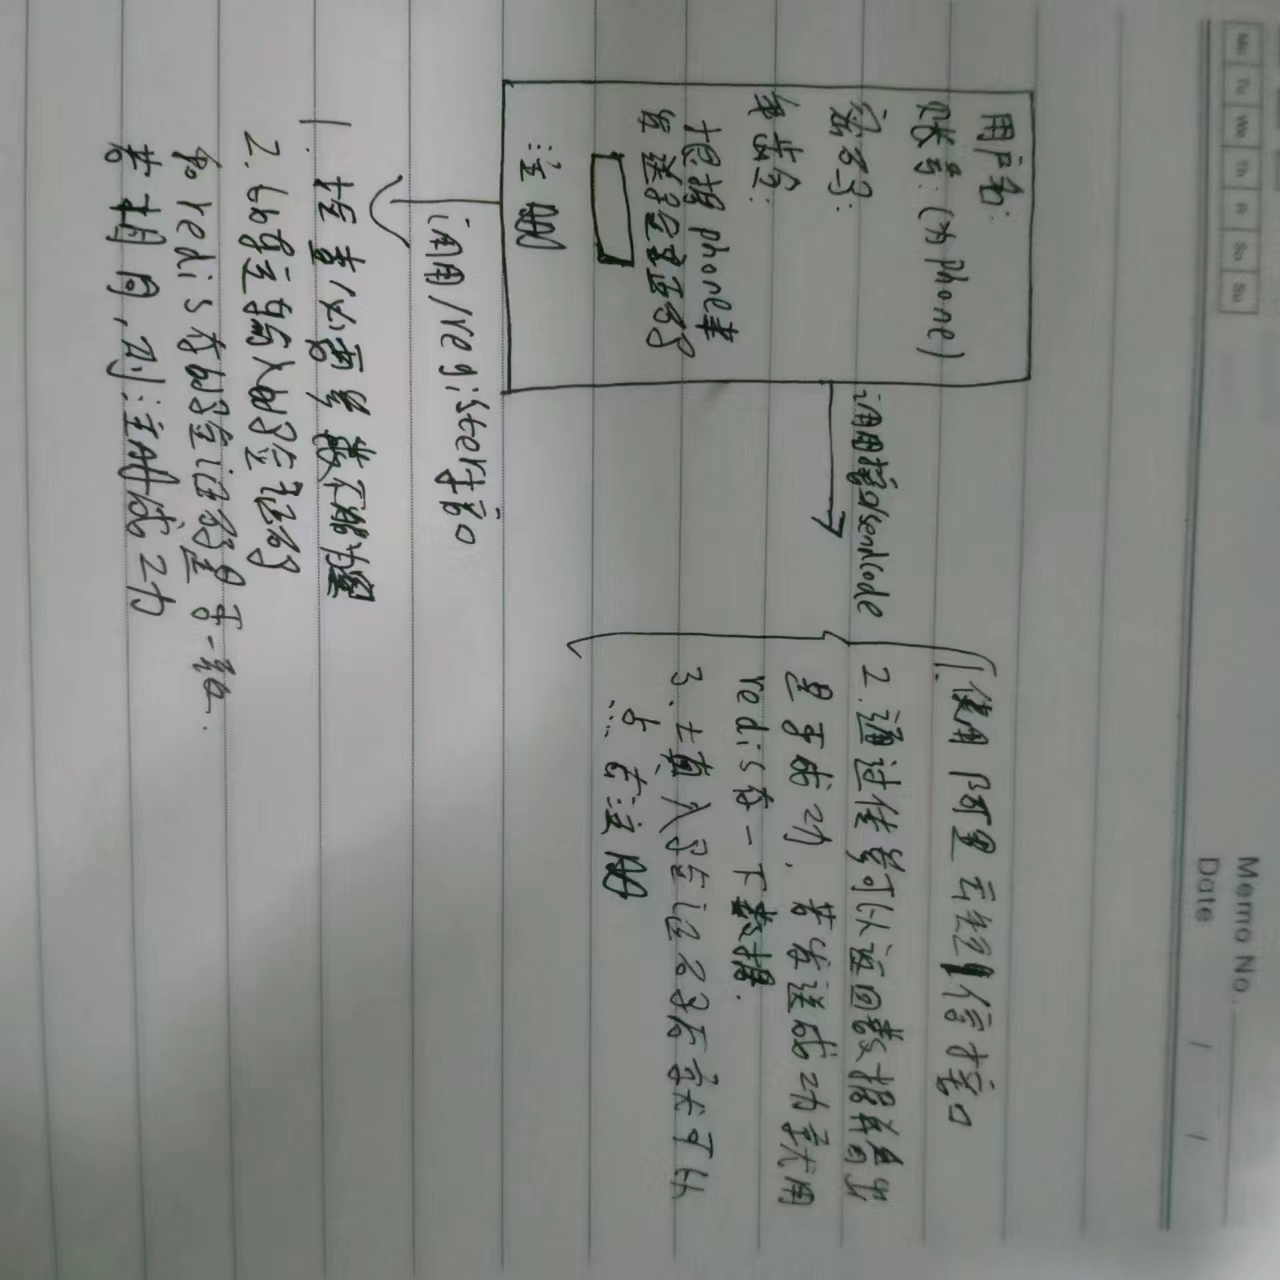 Mo Tu We Th Fr Sa Su
Memo No.
Date / /
用户名:
账号:(为phone)
密码:
身份:
根据phone来
发送验证码
注册
调用接口/sendcode
1.使用阿里云短信接口
2.通过传参可以返回数据看出
是否成功.若发送成功就用
redis存一下数据.
3.填入验证码后就可以
点击注册
调用/register接口
1.检查必需参数不能为空
2.比较输入的验证码
和redis存的验证码是否一致.
若相同,则注册成功